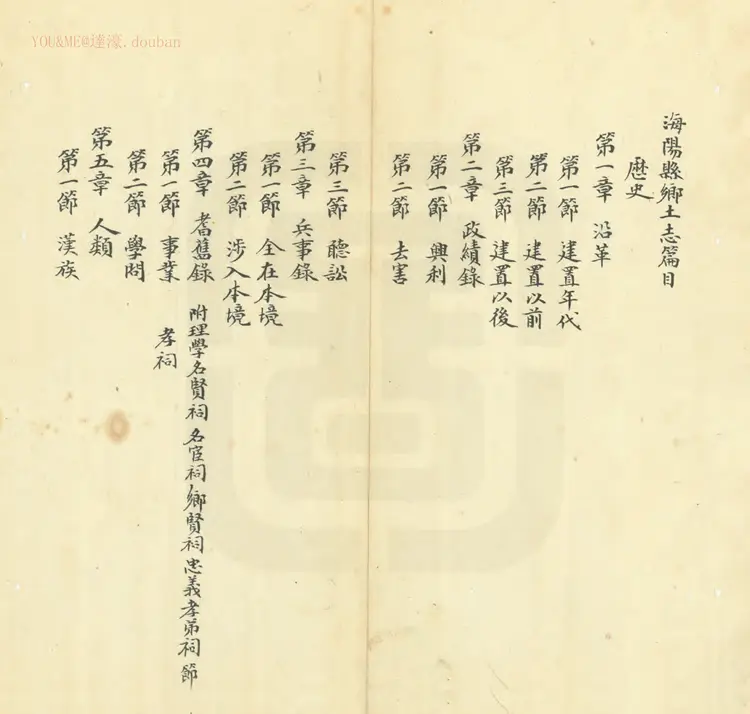 YOU&ME@達濠.douban
海陽縣鄉土志篇目
歷史
第一章 沿革
第一節 建置年代
第二節 建置以前
第三節 建置以後
第二章 政績錄
第一節 興利
第二節 去害
第三節 聽訟
第三章 兵事錄
第一節 全在本境
第二節 涉入本境
第四章 耆舊錄 附理學名賢祠 名宦祠 鄉賢祠 忠義孝弟祠 節
孝祠
第一節 事業
第二節 學問
第五章 人類
第一節 漢族